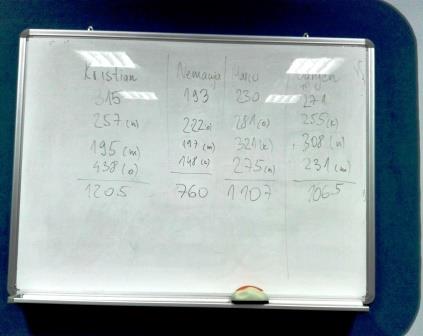 Kristian Nemanja
315 193 230 271
257(n) 222(o) 281(o) 255(k)
195(m) 197(m) 321(k) 308(n)
438(o) 148(k) 275(n) 231(m)
1205 760 1107 1065